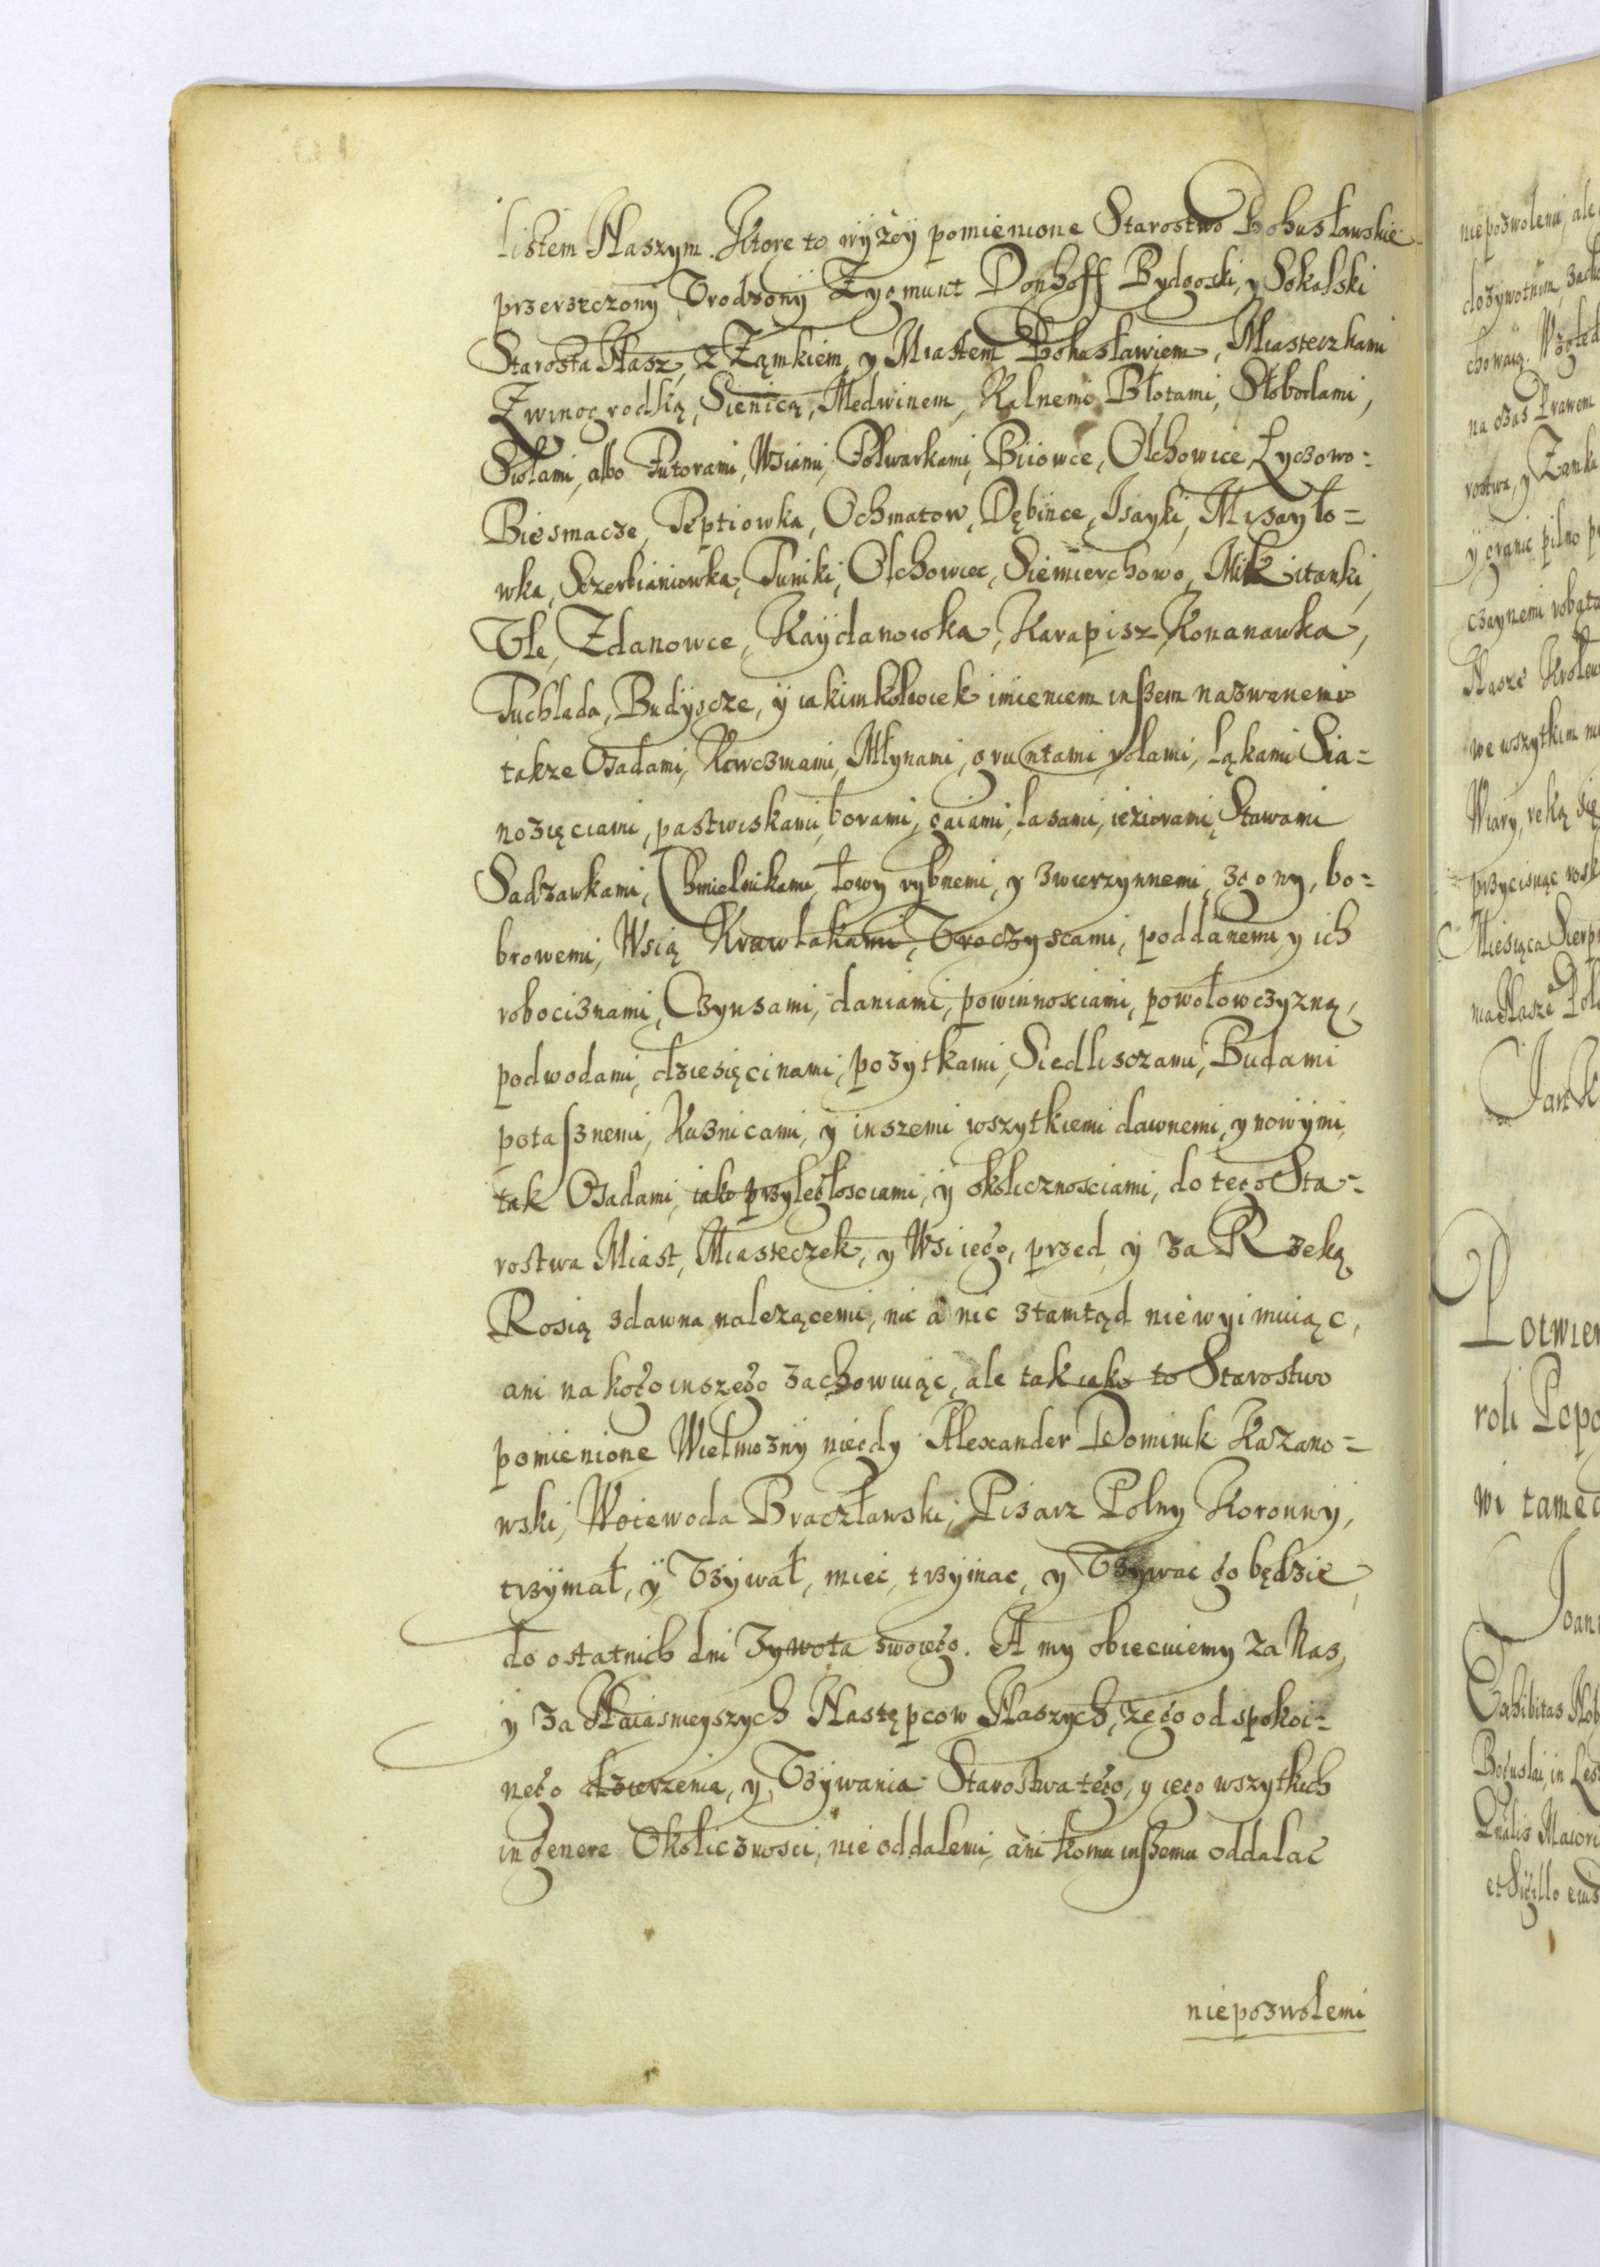 listem Naszym. Ktore to wyżey pomienione Starostwo Bohusławskie
przerzeczony Vrodzony Zygmunt Donhoff Bydgoski, y Sokalski
Starosta Nasz, z Zamkiem, y Miastem Bohusławiem, Miasteczkami
Zwinogrodką, Sienicą, Medwinem, Kalnemi Błotami, Słobodami,
Siołami, albo Futorami, Wsiami, Folwarkami, Biiowce, Olchowice, Łyczowo=
Biesmacze, Peptiowka, Ochmatow, Dębince, Isayki, Misayło=
wka, Szerbianiowka, Tuniki, Olchowiec, Siemierchowo, Mikitanki,
Vle, Zdanowce, Kaydanowka, Karapisz, Konanawka,
Tuchlada, Budyscze, y iakimkolwiek imieniem inszem nazwanemi
takze Osadami, Karczmami, Młynami, gruntami, rolami, Łąkami Sia=
nozięciami, pastwiskami, borami, gaiami, lasami, ieziorami, Stawami
Sadzawkami, Chmielnikami, łowy rybnemi, y zwierzynnemi, zgony, bo=
browemi, Wsią Krawłakami, Vroczyscami, poddanemi y ich
robociznami, Czynsami, daniami, powinnosciami, powołowczyzną,
podwodami, dziesięcinami, pozytkami, Siedlisczami, Budami
potasznemi, Ruśnicami, y inszemi wszytkiemi dawnemi, y nowymi,
tak Osadami, iako przyległosciami, y okolicznosciami, do tego Sta=
rostwa Miast, Miasteczek, y Wsi iego, przed y za Rzeką
Rosią zdawna nalezącemi, nic a nic ztamtąd niewyimuiąc,
ani nakogo inszego zachowuiąc, ale tak iako to Starostwo
pomienione Wielmozny niegdy Alexander Dominik Kazano=
wski, Woiewoda Bracławski, Pisarz Polny Koronny,
trzymał, y Vzywał, miec, trzymac, y Vzywac go będzie,
do ostatnich dni Zywota swoiego. A my obiecuiemy za Nas,
y za Naiasnieyszych Następcow Naszych, że go od spokoi=
nego dzierzenia, y Vzywania Starostwa tego, y iego wszytkich
in genere Okolicznosci, nie oddalemi, ani komu inszemu oddalac
niepozwolemi
niepozwolemi, ale
dozywotnim
chowaią.
na czas Prawem
rostwa, y Zamku
y granic pilno
czaynemi robota
Nasze
we wszytkim
Wiary, ręką się
przycisnąc
Miesiąca Sierp
nia Nasze
Jan K
Potwier
roli Popo
wi tamec
Joan
Exhibitas
Boguslai, in
Maiori
et Sigillo eius